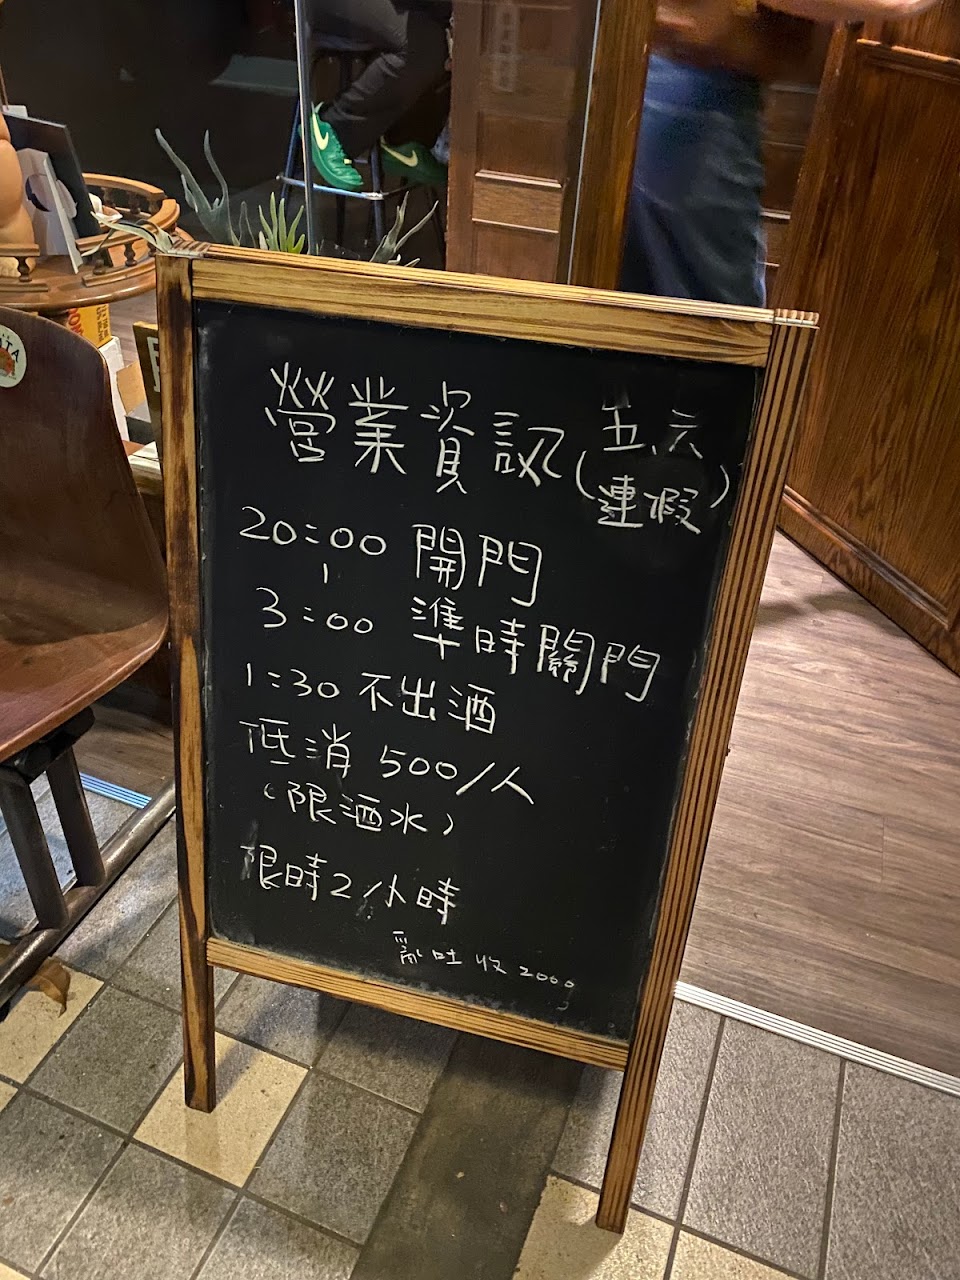 營業資訊(五、六
連假)
20:00 開門
|
3:00 準時關門
1:30 不出酒
低消 500/人
(限酒水)
限時2小時
亂吐收2000